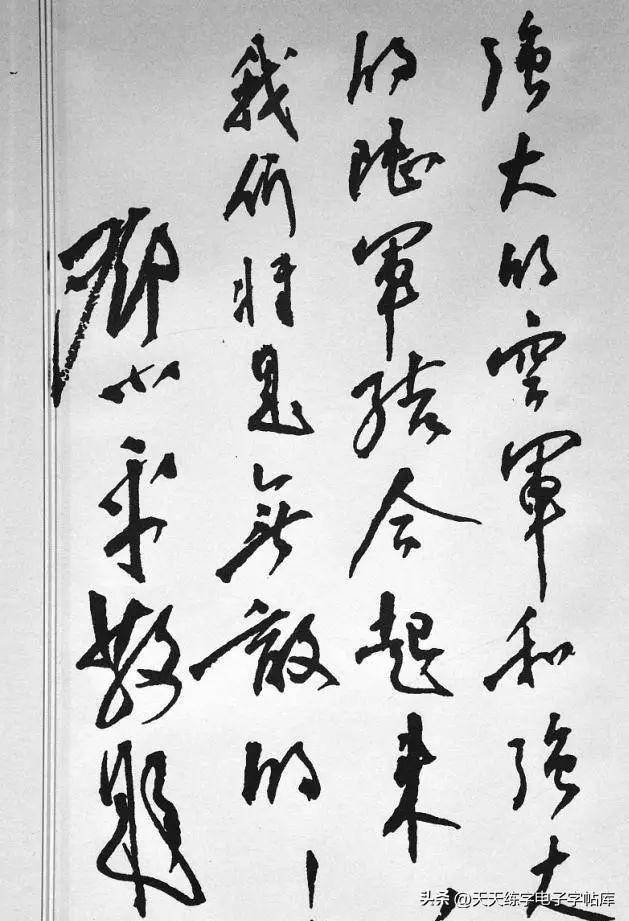 強大的空軍和強大
的陸軍結合起来，
我们将是無敵的！
鄧小平敬題
头条 @天天练字电子字帖库